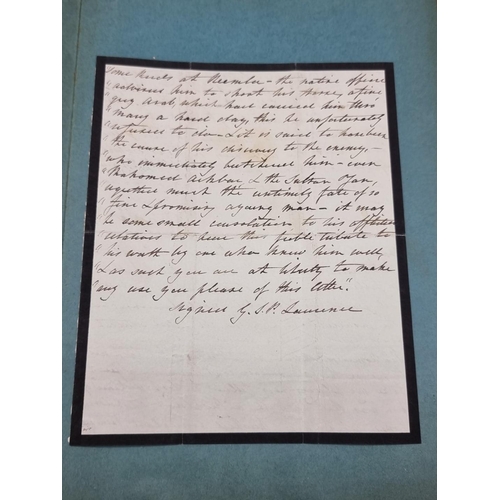 some rocks at            the native officer
" advised him to shoot his horse, a fine
" grey Arab, which had carried him thro
" many a hard day, this he unfortunately
" refused to do — & it is said to have been
" the cause of his discovery to the enemy, —
" who immediately butchered him — even
" Mahomed Ackbar & the Sultan Jan,
" regretted much the untimely fate of so
" fine & promising a young man — it may
" be some small consolation to his afflicted
" relatives to have this feeble tribute to
" his worth by one who knew him well,
" & as such you are at liberty to make
" any use you please of this letter".
Signed G. S. P. Lawrence